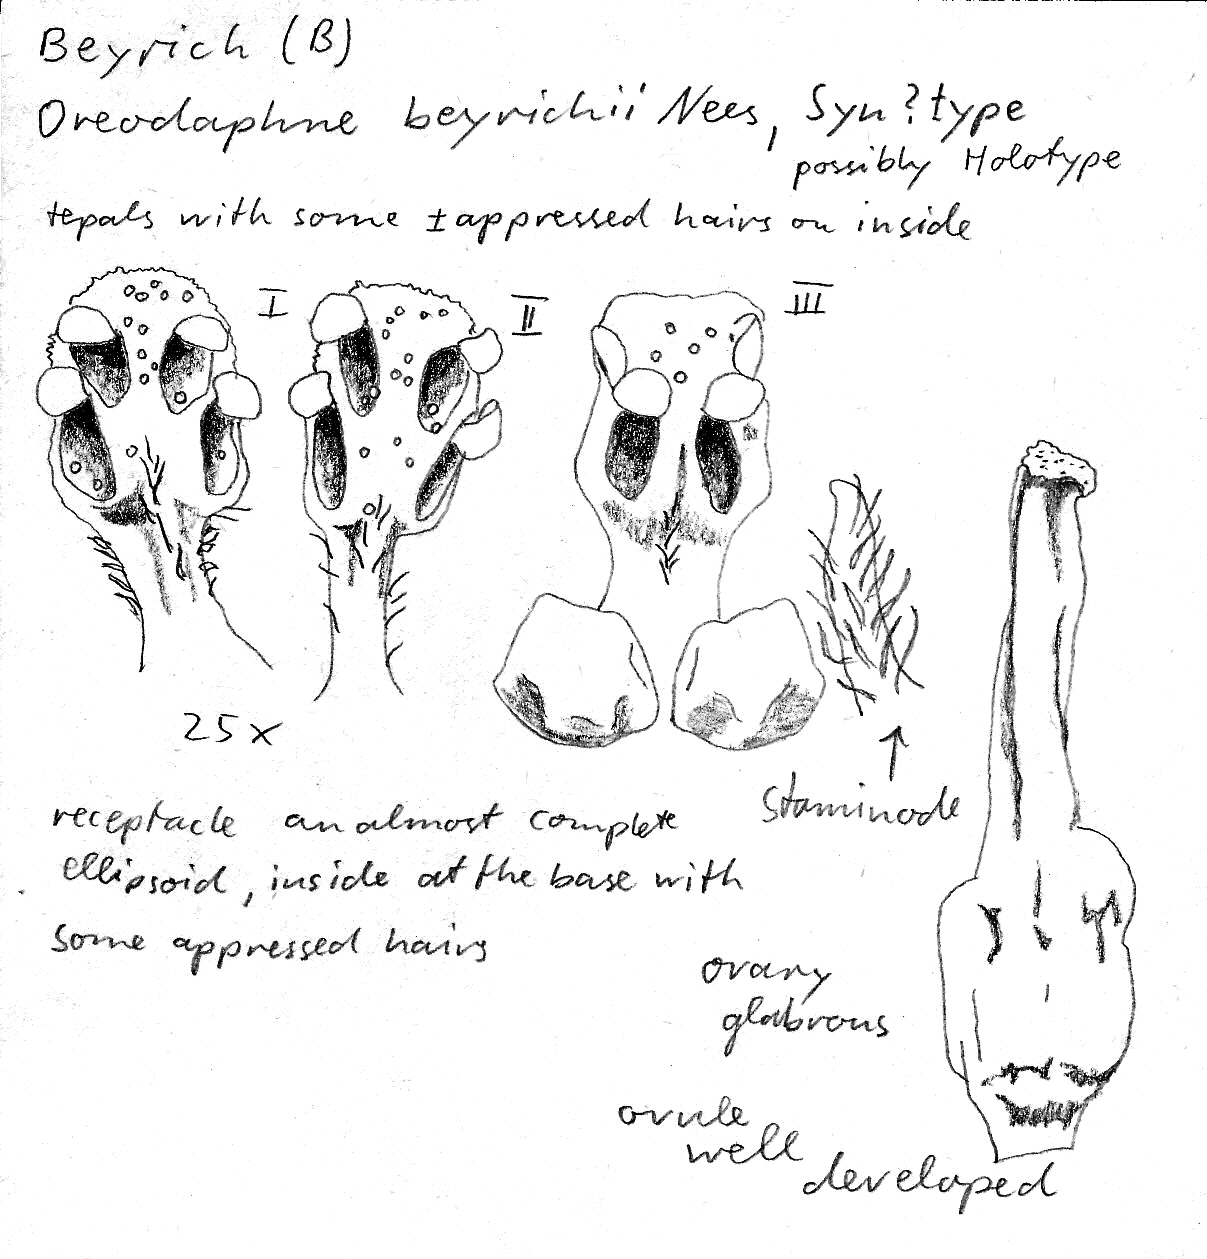 Beyrich (B)
Oreodaphne beyrichii Nees, Syn?type
possibly Holotype
tepals with some ± appressed hairs on inside
I
II
III
25x
Staminode
receptacle an almost complete
ellipsoid, inside at the base with
some appressed hairs
ovary
glabrous
ovule
well
developed